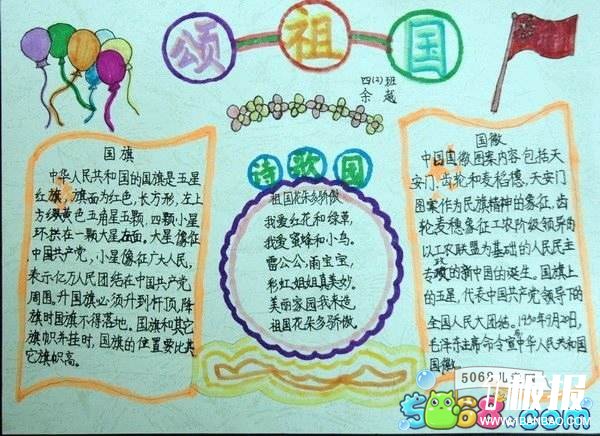 颂祖国
四(2)班
余越
国旗
中华人民共和国的国旗是五星
红旗，旗面为红色，长方形，左上
方缀黄色五角星五颗，四颗小星
环拱在一颗大星左面。大星像征
中国共产党，小星像征广大人民，
表示亿万人民团结在中国共产党
周围。升国旗必须升到杆顶，降
旗时国旗不得落地。国旗和其它
旗帜并挂时，国旗的位置要比其
它旗帜高。
诗歌园
祖国花朵多骄傲
我爱红花和绿草，
我爱蜜蜂和小鸟。
雷公公，雨宝宝，
彩虹姐姐真美妙。
美丽家园我来造，
祖国花朵多骄傲。
国徽
中国国徽图案内容，包括天
安门、齿轮和麦稻穗，天安门
图案作为民族精神的象征，齿
轮麦穗象征工农阶级领导的
以工农联盟为基础的人民民主
专政的新中国的诞生。国旗上
的五星，代表中国共产党领导下的
全国人民大团结。1950年9月20日，
毛泽东主席命令宣布中华人民共和国
国徽
5068儿
板报
5068.com
WWW.1BANBAO.COM